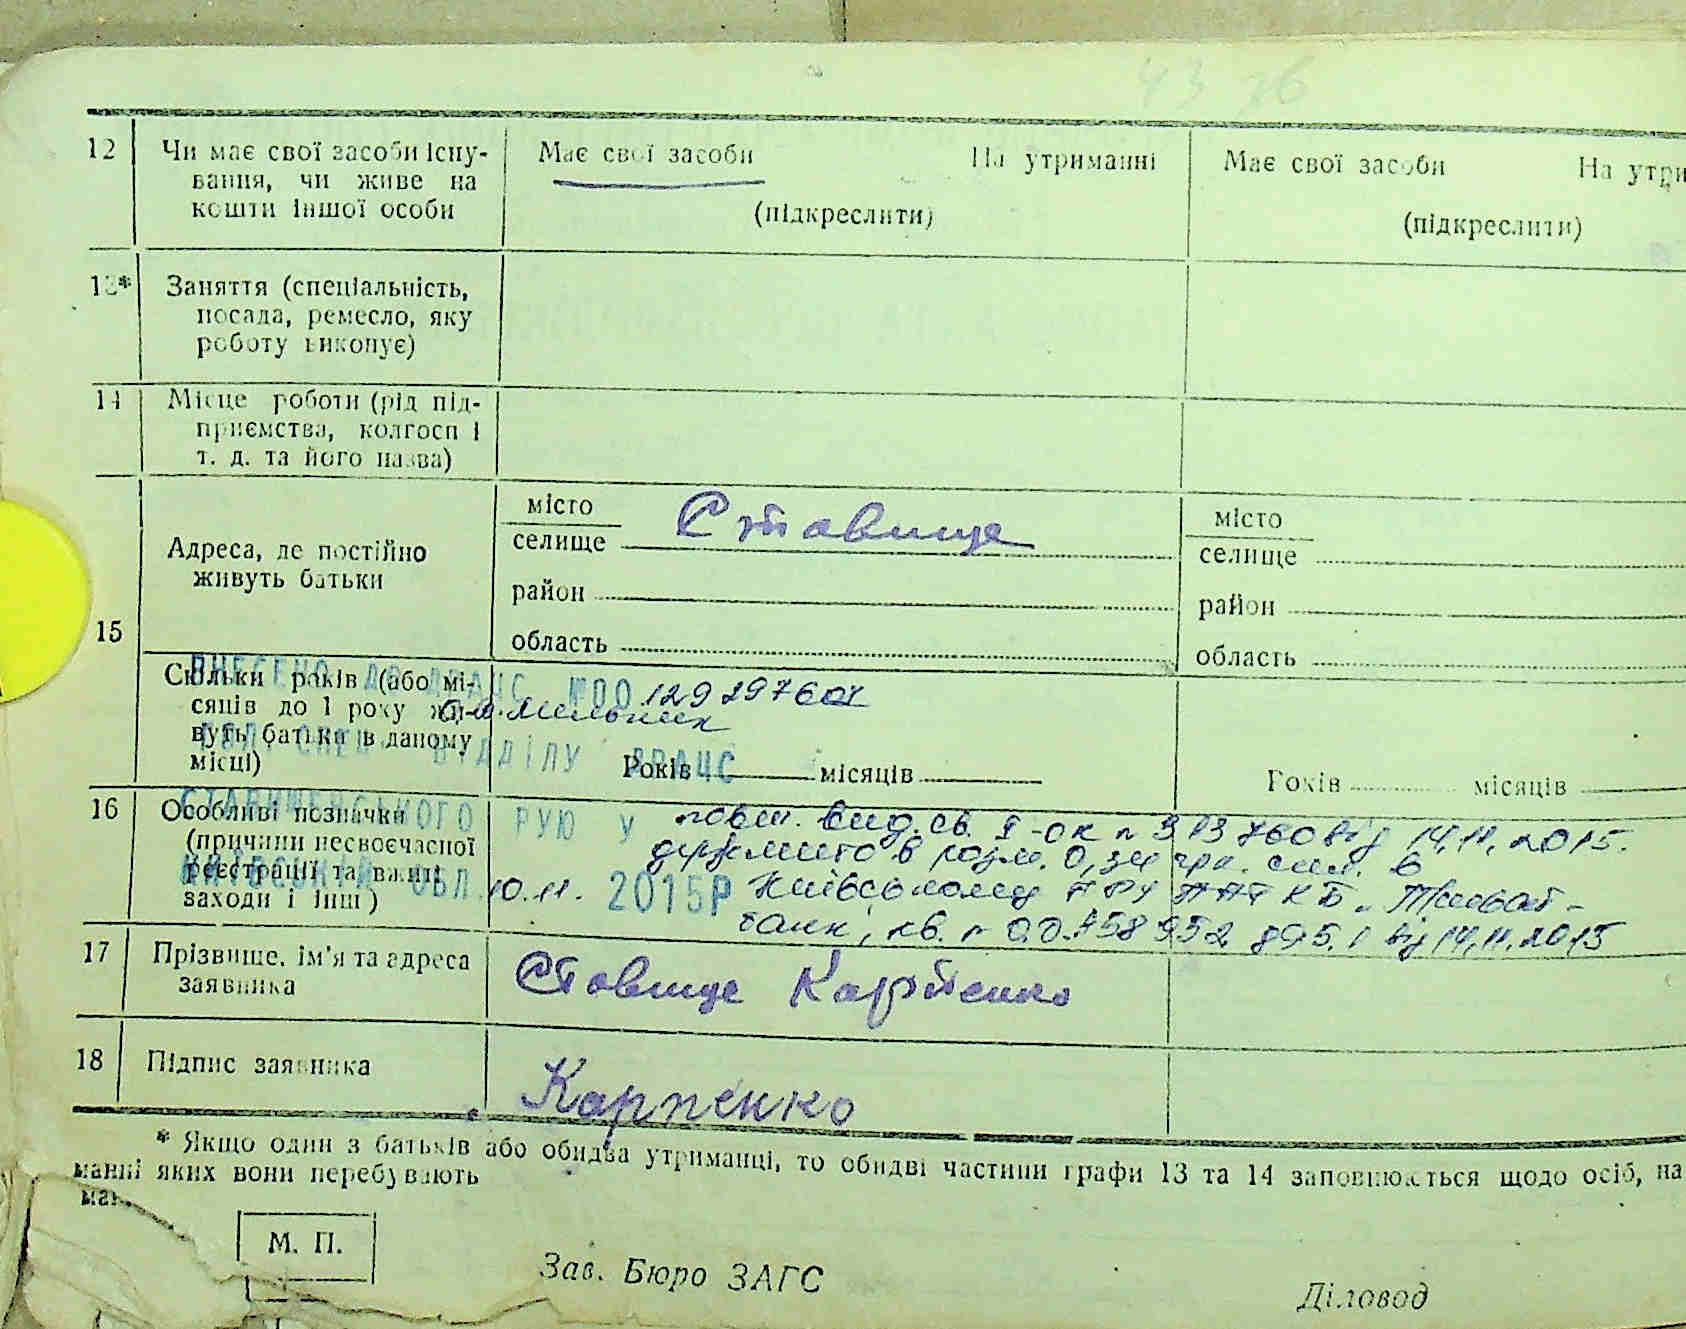 43 зв
12 Чи має свої засоби існу-
вання, чи живе на
кошти іншої особи
Має свої засоби На утриманні
(підкреслити)
Має свої засоби На утри
(підкреслити)
13* Заняття (спеціальність,
посада, ремесло, яку
роботу виконує)
14 Місце роботи (рід під-
приємства, колгосп і
т. д. та його назва)
15 Адреса, де постійно
живуть батьки
місто
селище Ставище
район
область
місто
селище
район
область
Скільки років (або мі-
сяців до 1 року жи-
вуть батьки в даному
місці)
Років місяців
Років місяців
ВНЕСЕНО ДО ДРАЦС №00129297601
Мельник
ВІДДІЛУ ДРАЦС
СТАВИЩЕНСЬКОГО РУЮ У
КИЇВСЬКІЙ ОБЛ. 10.11. 2015Р
16 Особливі позначки
(причини несвоєчасної
реєстрації та важні
заходи і інш)
повт. вид. св. І-ок № 313760 від 14.11.2015.
держмито в розм. 0,34 грн. спл. в
Київському ГРУ ПАТ КБ „Приват-
банк", кв. №
від 14.11.2015
17 Прізвище, ім'я та адреса
заявника
Ставище Карпенко
18 Підпис заявника
Карпенко
* Якщо один з батьків або обидва утриманці, то обидві частини графи 13 та 14 заповнюються щодо осіб, на
манні яких вони перебувають
ман
М. П.
Зав. Бюро ЗАГС
Діловод